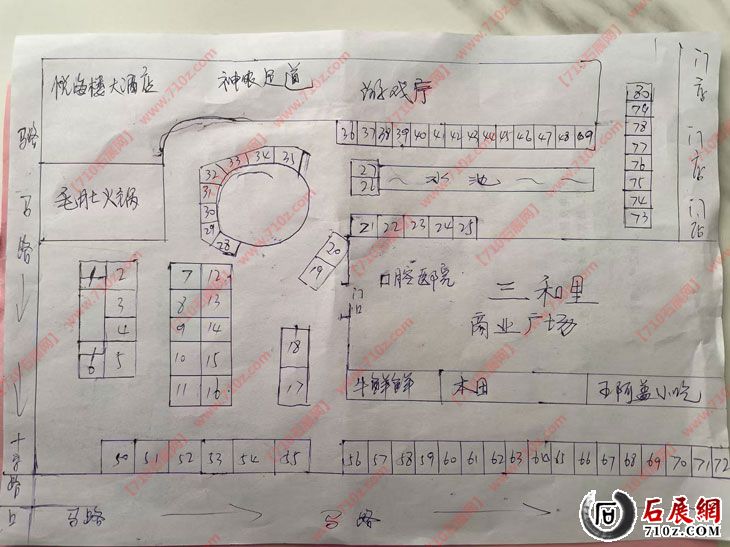 悦海楼大酒店 神农足道 游戏厅
门店
门店
门店
马路
马路
36 37 38 39 40 41 42 43 44 45 46 47 48 49
80
79
78
77
76
75
74
73
27
26
水池
21 22 23 24 25
毛月土火锅
32 33 34 35
31
30
29
28
20
19
口腔医院
门口
三和里
商业广场
1 2
3
4
6 5
7 12
8 13
9 14
10 15
11 16
18
17
牛鲜鲜 木田 王阿盖小吃
50 51 52 53 54 55
56 57 58 59 60 61 62 63 64 65 66 67 68 69 70 71 72
十字路口
马路 马路
【710石展网】
www.710z.com
石展網
710z.com